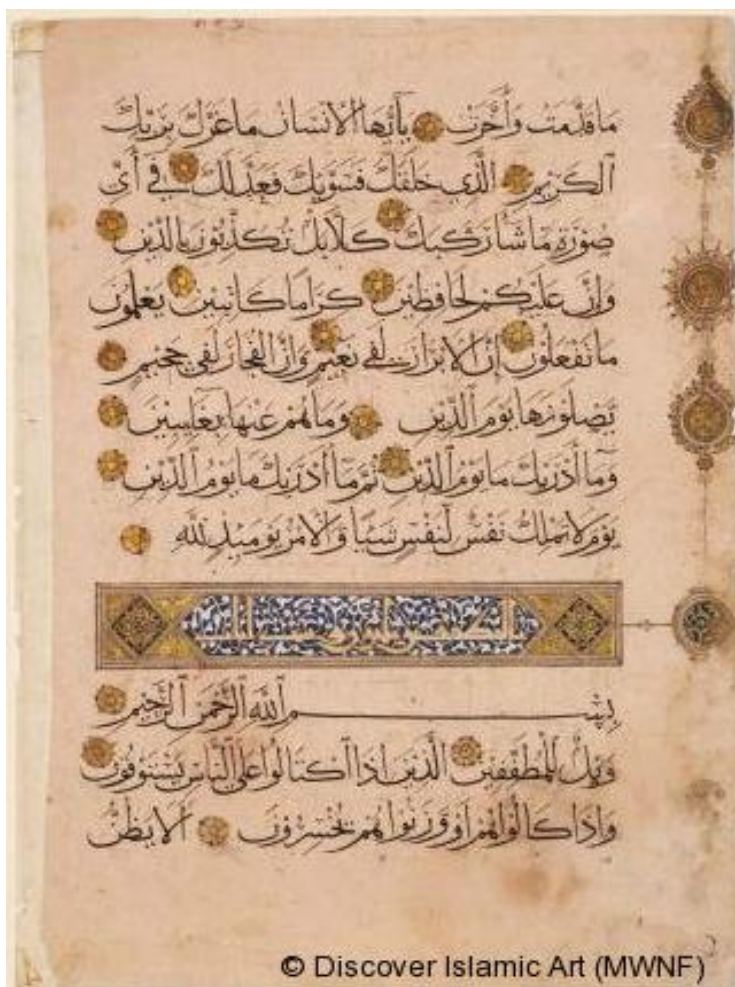 ما قدمت وأخرت يأيها الانسان ما غرك بربك
الكريم الذي خلقك فسويك فعدلك في أي
صورة ما شا ركبك كلا بل تكذبون بالدين
وإن عليكم لحافظين كراما كاتبين يعلمون
ما تفعلون إن الابرار لفي نعيم وإن الفجار لفي جحيم
يصلونها يوم الدين وما هم عنها بغايبين
وما أدريك ما يوم الدين ثم ما أدريك ما يوم الدين
يوم لا تملك نفس لنفس شيئا والامر يوميذ لله
بسم الله الرحمن الرحيم
ويل للمطففين الذين اذا اكتالوا على الناس يستوفون
واذا كالوهم او وزنوهم يخسرون الا يظن
© Discover Islamic Art (MWNF)